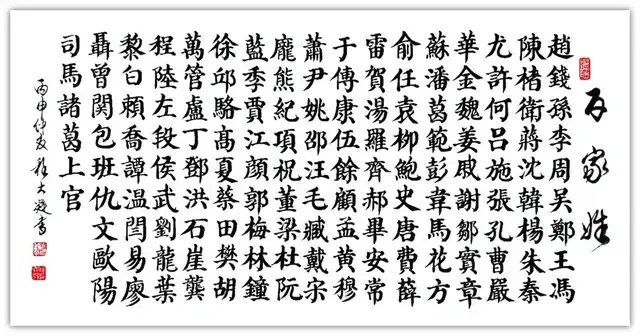 百家姓
趙錢孫李周吳鄭王馮
陳楮衛蔣沈韓楊朱秦
尤許何呂施張孔曹嚴
華金魏姜戚謝鄒竇章
蘇潘葛範彭韋馬花方
俞任袁柳鮑史唐費薛
雷賀湯羅齊郝畢安常
于傅康伍餘顧孟黃穆
蕭尹姚邵汪毛臧戴宋
龐熊紀項祝董梁杜阮
藍季賈江顏郭梅林鐘
徐邱駱高夏蔡田樊胡
萬管盧丁鄧洪石崖龔
程陸左段侯武劉龍葉
黎白賴喬譚溫閆易廖
聶曾関包班仇文歐陽
司馬諸葛上官
丙申仲夏